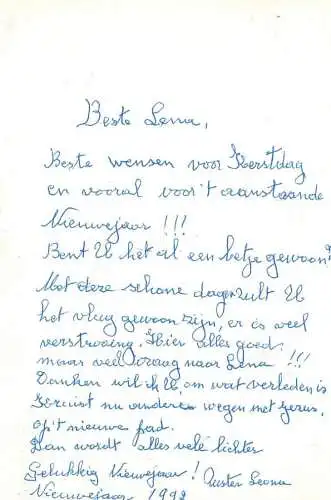 Beste Lena,
Beste wensen voor Kerstdag
en vooral voor 't aanstaande
Nieuwejaar !!!
Bent U het al een betje gewoon?
Met deze schone dagen zult U
het vlug gewoon zijn, er is veel
verstrooing. Hier alles goed,
maar veel vraag naar Lena !!!
Danken wil ik U, om wat verleden is
nu anderen wegen met Jezus,
op 't nieuwe pad.
Dan wordt alles vele lichter
Gelukkig Nieuwejaar! Zuster Leona
Nieuwejaar 1992